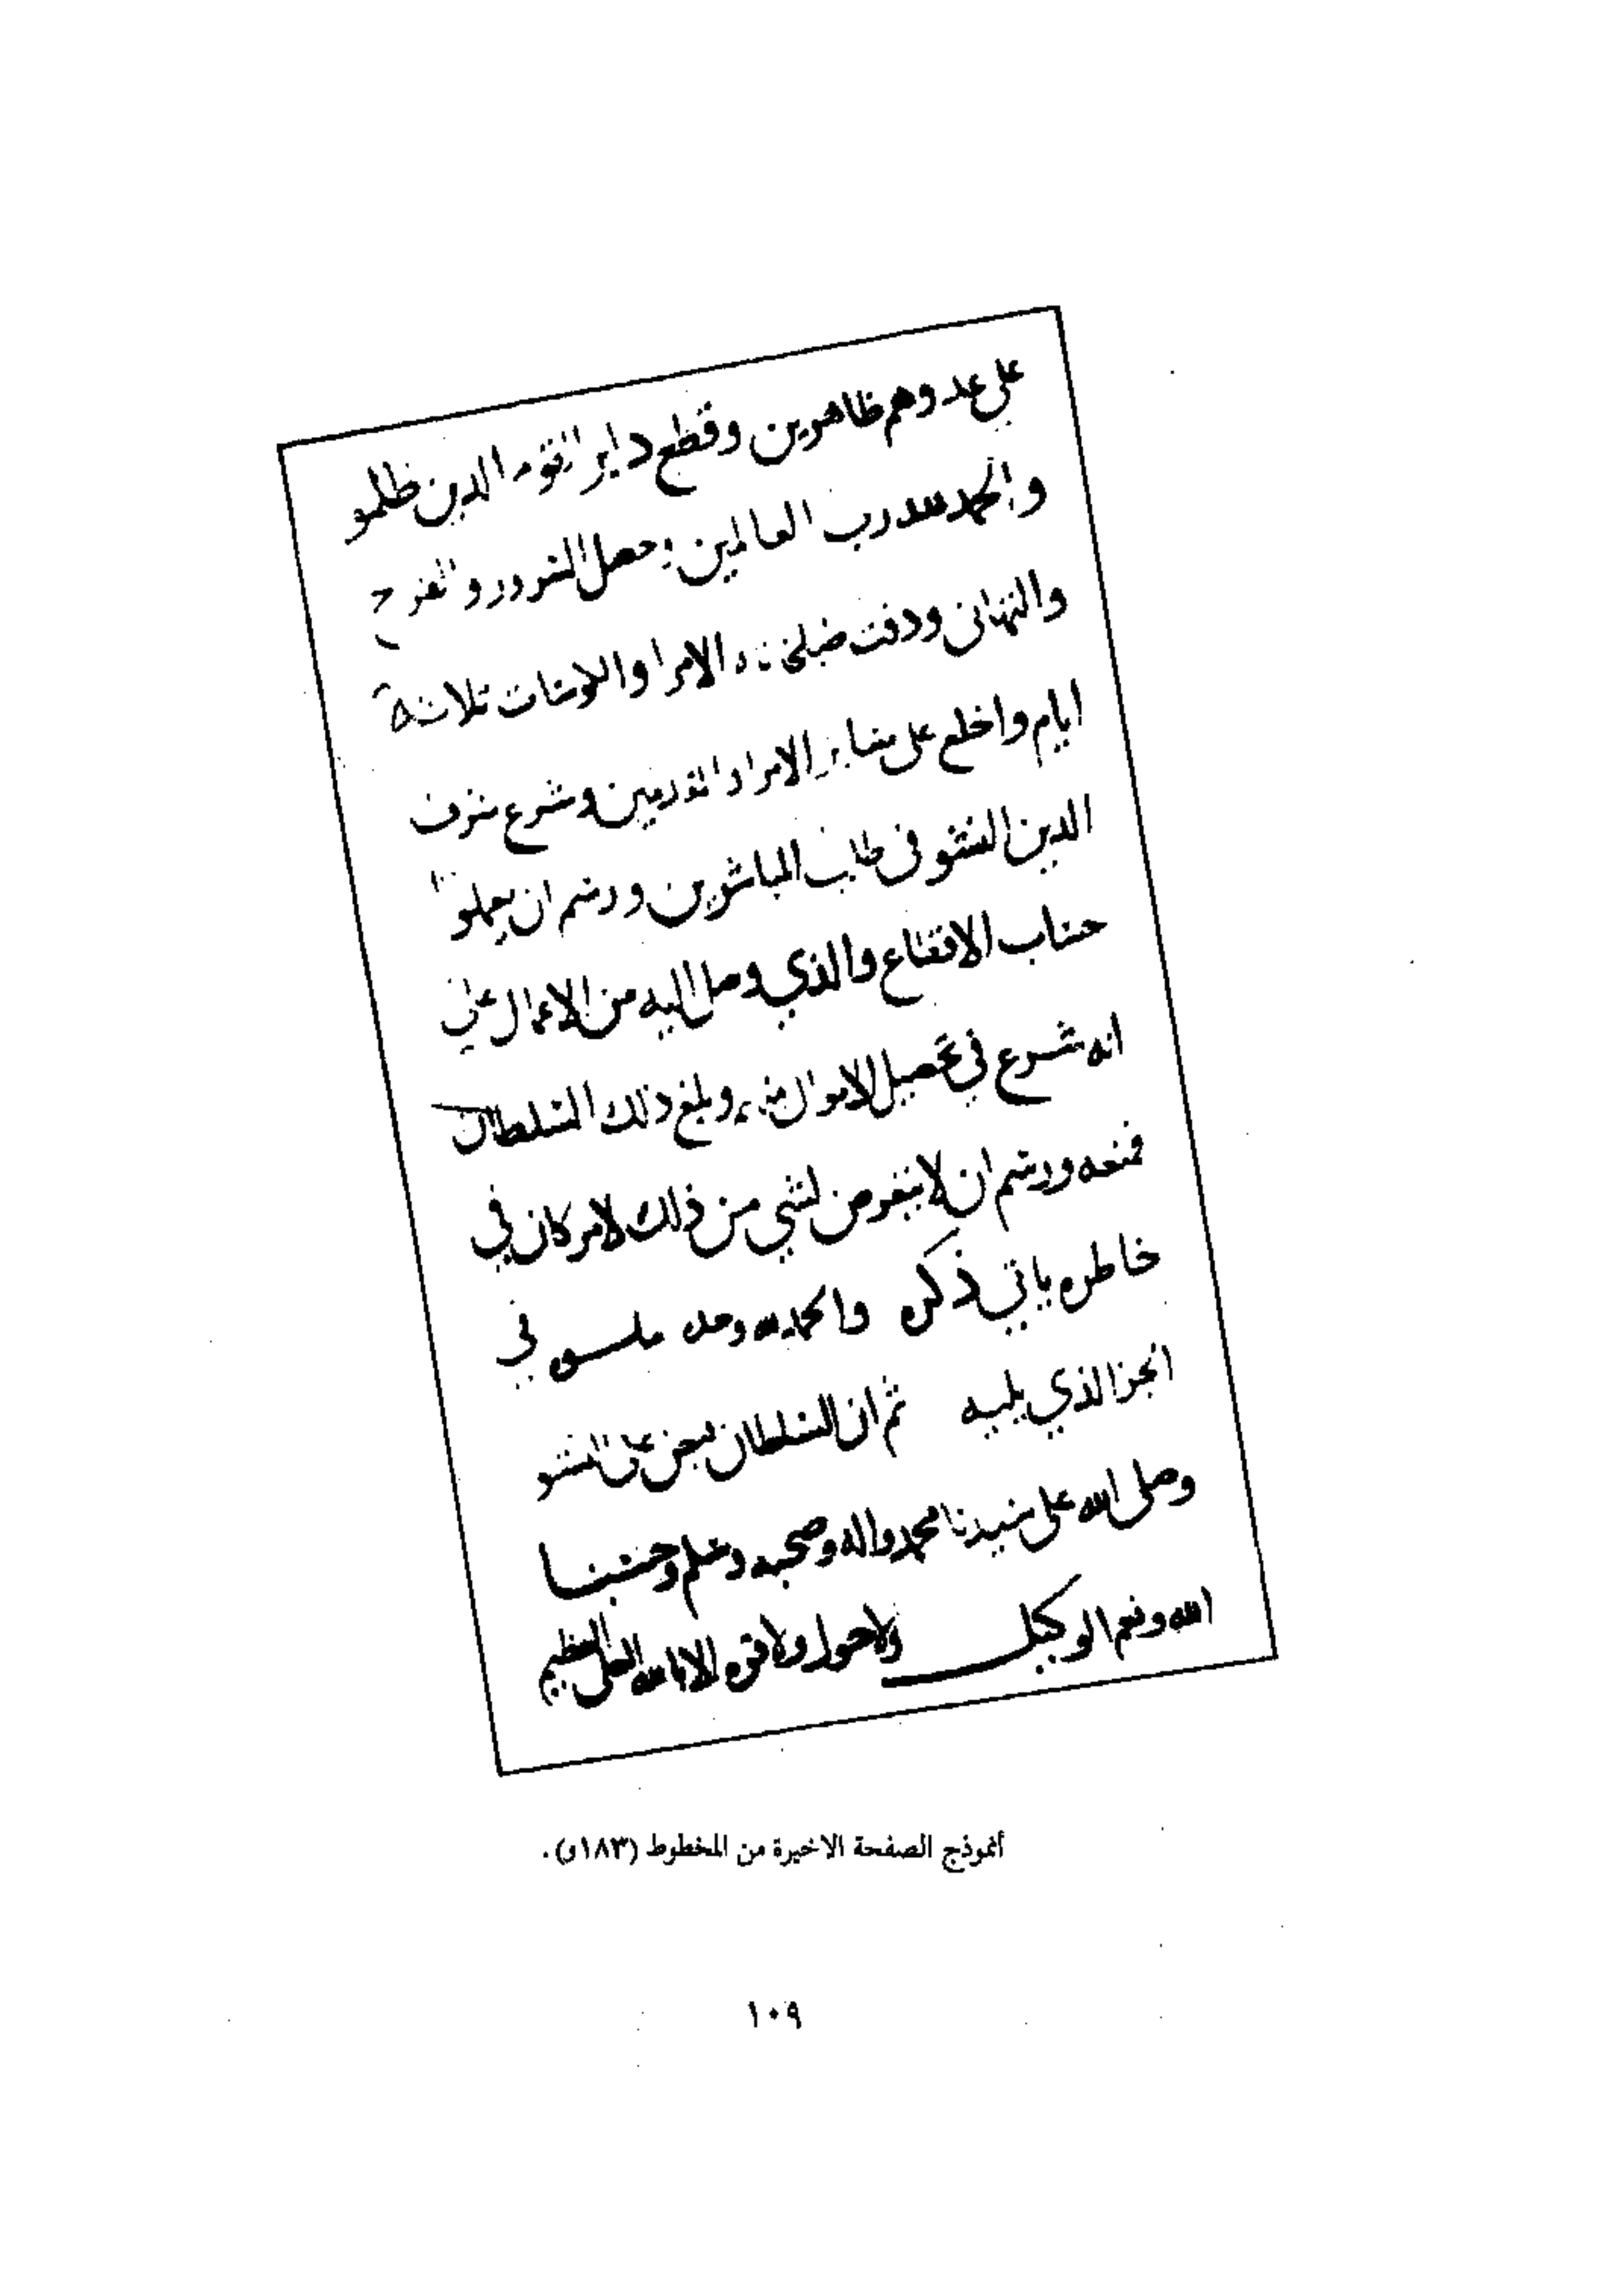 على عدوهم ظاهرين وقطع دابر القوم الدين ظلمو
والحمد لله رب العالمين وحصل السرور والفرح
والتهاني ودقت طبلخناه الامرا والكوسات ثلاثة
ايام واخلع على سائر الامرا والمقدمين وشرع شرف
الدين النشو في طلب المباشرين ورسم ان يعملو
حساب الاقطاع والذي وصل اليه من الاعمال على
انه شرع في تحصيل الاموال منه وبلغ ذلك السلطان
فمنعه ورسم ان لا يتعرض لشي من ذلك لامر كان في
خاطره ياتي ذكره والحمد لله وحده يتلوه في
الجز الذي يليه ثم ان السلطان قبض على النشو
وصلى الله على سيدنا محمد واله وصحبه وسلم وحسبنا
الله ونعم الوكيل ولا حول ولا قوه الا بالله العلي العظيم
أنموذج الصفحة الاخيرة من المخطوط (١٨٣و).
١٠٩